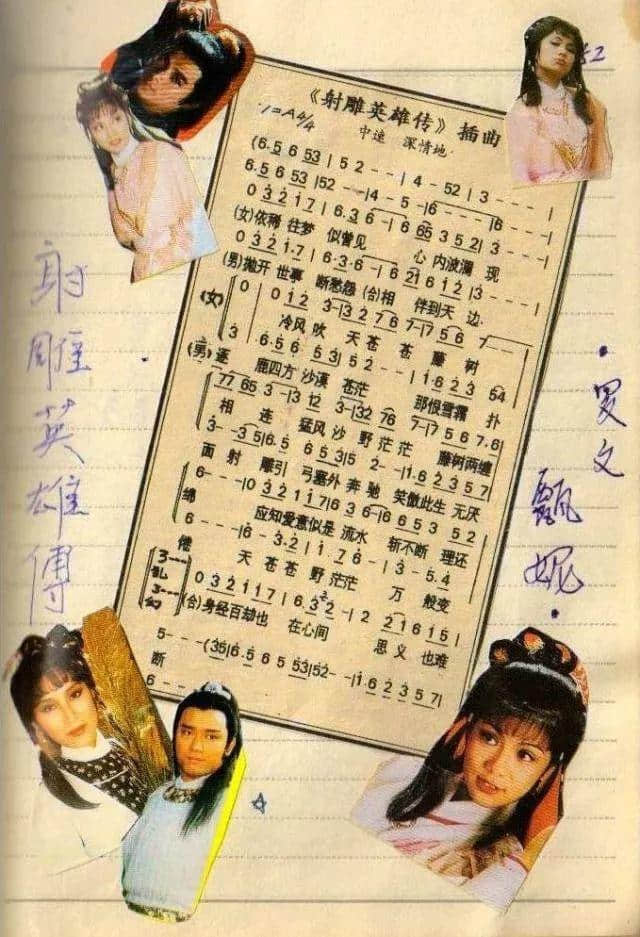 《射雕英雄传》插曲
1=A4/4 中速 深情地
(6·5 6 53 | 5 2 - - | 4 - 52 | 3 - - - |
6·5 6 53 | 52 - - | 4 - 5 - | 6 - - - | 6 - - -)
0 3 2 1 7 | 6·3 6 - | 6 65 3 5 2 | 3 - - - |
(女)依稀 往梦 似曾见 心 内波澜 现
0 3 2 1·7 | 6·3·6 - | 6 21 6 1 2 | 3 - - - |
(男)抛开 世事 断愁怨 (合)相 伴到天 边
(女) 0 0 12 3-|3 2 7 6 7-|7 5 6 7 - - -
冷风吹 天 苍 苍 藤 树
3 6·5 6 5 3 | 5 2 - - | 1·6 2 3 54
(男)逐 鹿四方 沙漠 苍茫 那恨雪霜 扑
77 65 3-|3 12 3-|32 76 7-|7 5 6 7·6 |
相 连 猛风 沙 野 茫茫 藤树两缠
3 - - 3 5 | 6·5 6 5 3 | 5 2 - - | 1·6 2 3 5 7 |
面 射 雕引 弓塞外 奔 驰 笑傲此生 无厌
6 - - - | 0 3 2 1 1 7 | 6 3 6 - | 6 6 5 3 5 2 |
绵 应知爱意似是 流水 斩不断 理还
6 - - - | 6 - 3·2 | 1 7 6 - | 3 - 5·4
倦 天 苍苍 野 茫茫 万 般变
3 - - -
乱 0 3 2 1 1 7 | 6·3 2 - | 2 21 6 1 5 |
3 - - -
幻 (合)身经百劫也 在心间 恩义 也难
5 - - - (35 | 6·5 6 5 53 | 52 - - | 1·6 2 3 5 7 |
断
6 - - -
射雕英雄傳
罗文
甄妮